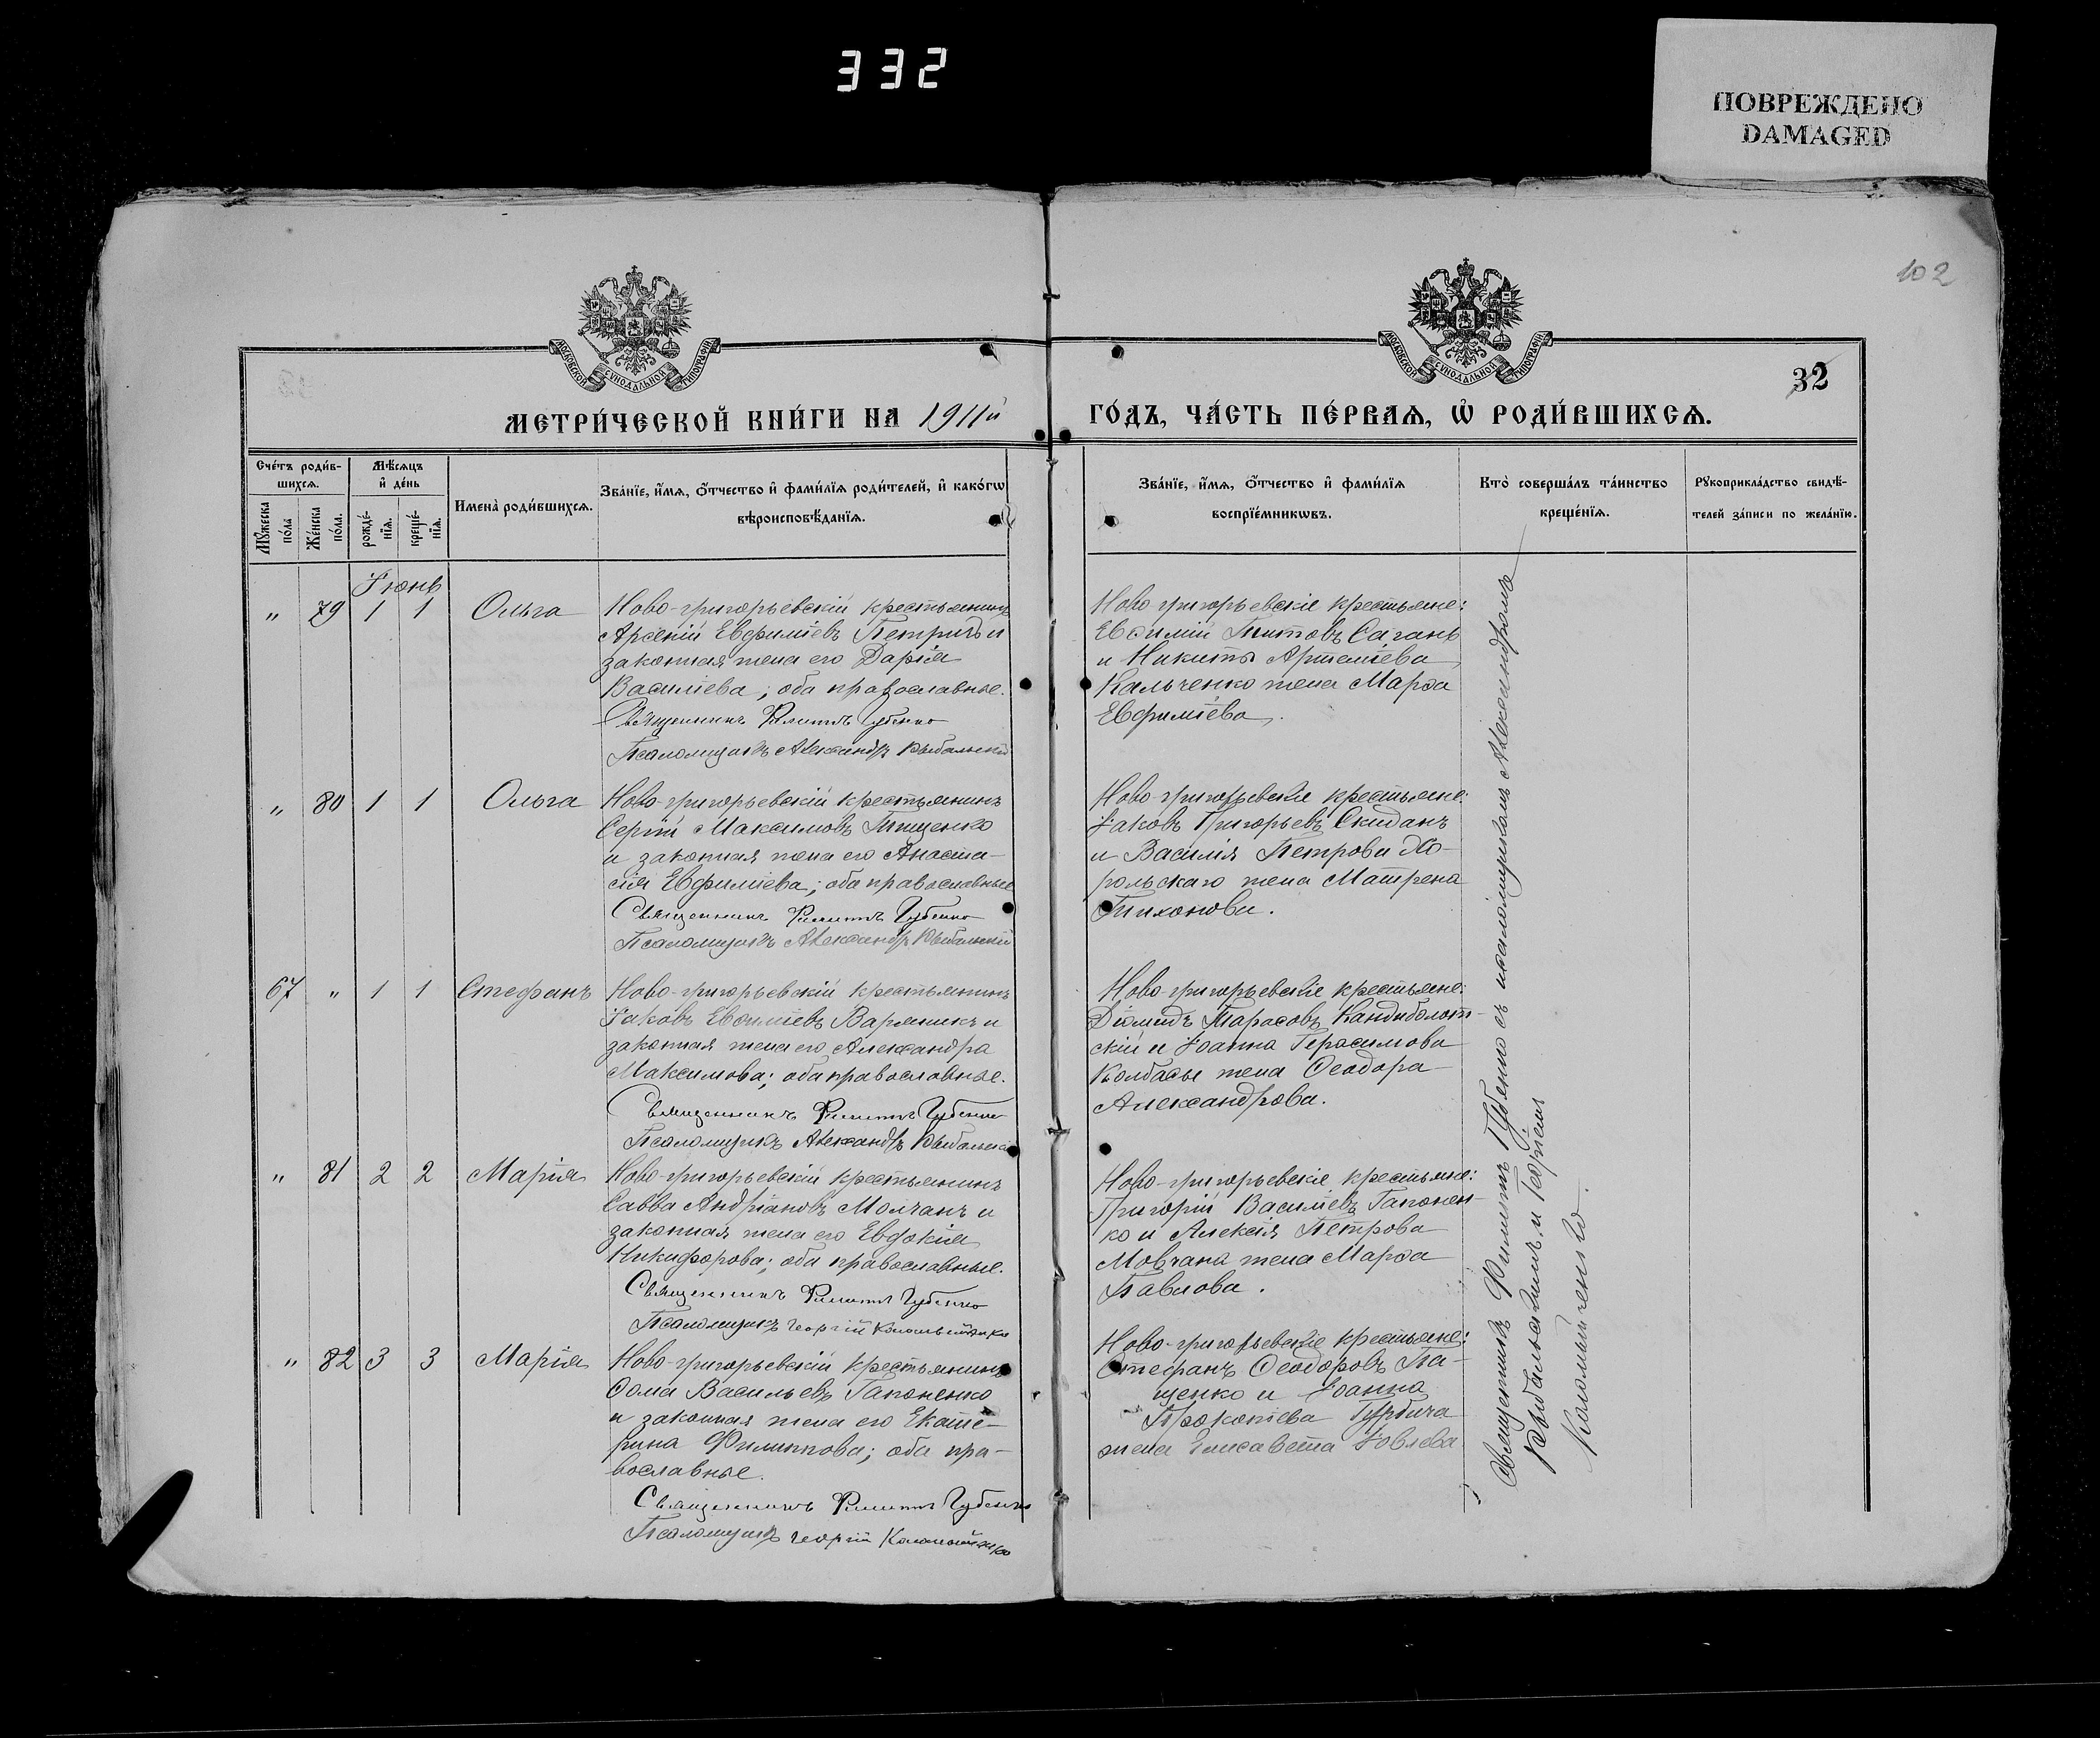 332
ПОВРЕЖДЕНО
DAMAGED
102
МОСКОВСКОЙ СУНОДАЛЬНОЙ ТИПОГРАФІИ
МОСКОВСКОЙ СУНОДАЛЬНОЙ ТИПОГРАФІИ
32
МЕТРИ́ЧЕСКОЙ КНИ́ГИ НА 1911й
ГО́ДЪ, ЧА́СТЬ ПЕ́РВАѦ, Ѡ҆ РОДИ́ВШИХСѦ.
Сче́тъ роди́в-
шихсѧ.
Мꙋ́жеска
по́ла
Же́нска
по́ла.
Мѣ́сѧцъ
и҆ де́нь
рожде́-
нїѧ.
креще́-
нїѧ.
Имена̀ роди́вшихсѧ.
Зва́нїе, и҆́мѧ, ѻ҆́тчество и҆ фами́лїѧ роди́телей, и҆ како́гѡ
вѣроисповѣ́данїѧ.
Зва́нїе, и҆́мѧ, ѻ҆́тчество и҆ фами́лїѧ
воспрїе́мникѡвъ.
Кто̀ соверша́лъ та́инство
креще́нїѧ.
Рꙋкоприкла́дство свидѣ́-
телей за́писи по жела́нїю.
Іюнь
„ 79 1 1 Ольга
Ново-григорьевскій крестьянинъ
Арсеній Евфиміевъ Петричъ и
законная жена его Дарія
Василіева; оба православные.
Священникъ Филиппъ Губенко
Псаломщикъ Александръ Рыбальскій
Ново григорьевскіе крестьяне:
Евѳимій Титовъ Саганъ
и Никиты Артеміева
Кальченко жена Марѳа
Евфиміева.
„ 80 1 1 Ольга
Ново-григорьевскій крестьянинъ
Сергій Максимовъ Тищенко
и законная жена его Анаста-
сія Евфиміева; оба православные
Священникъ Филиппъ Губенко
Псаломщикъ Александръ Рыбальскій
Ново-григорьевскіе крестьяне:
Іаковъ Григорьевъ Скиданъ
и Василія Петрова Хо-
рольскаго жена Матрена
Тихонова.
67 „ 1 1 Стефанъ
Ново-григорьевскій крестьянинъ
Іаковъ Евѳиміевъ Вареникъ и
законная жена его Александра
Максимова; оба православные.
Священникъ Филиппъ Губенко
Псаломщикъ Александръ Рыбальскій
Ново-григорьевскіе крестьяне:
Діомидъ Тарасовъ Кандиболот-
скій и Іоанна Герасимова
Колбасы жена Ѳеодора
Александрова.
„ 81 2 2 Марія
Ново-григорьевскій крестьянинъ
Савва Андріановъ Молчанъ и
законная жена его Евдокія
Никифорова; оба православные.
Священникъ Филиппъ Губенко
Псаломщикъ Георгій Коломыйченко
Ново-григорьевскіе крестьяне:
Григорій Василіевъ Гапонен-
ко и Алексія Петрова
Мовчана жена Марѳа
Павлова.
„ 82 3 3 Марія
Ново-григорьевскій крестьянинъ
Ѳома Васильевъ Гапоненко
и законная жена его Екате-
рина Филиппова; оба пра-
вославные.
Священникъ Филиппъ Губенко
Псаломщикъ Георгій Коломыйченко
Ново-григорьевскіе крестьяне:
Стефанъ Ѳеодоровъ Па-
щенко и Іоанна
Прокопіева Гурбича
жена Елисавета Іовлева
Священникъ Филиппъ Губенко съ псаломщикомъ Александромъ
Рыбальскимъ и Георгіемъ
Коломыйченко.